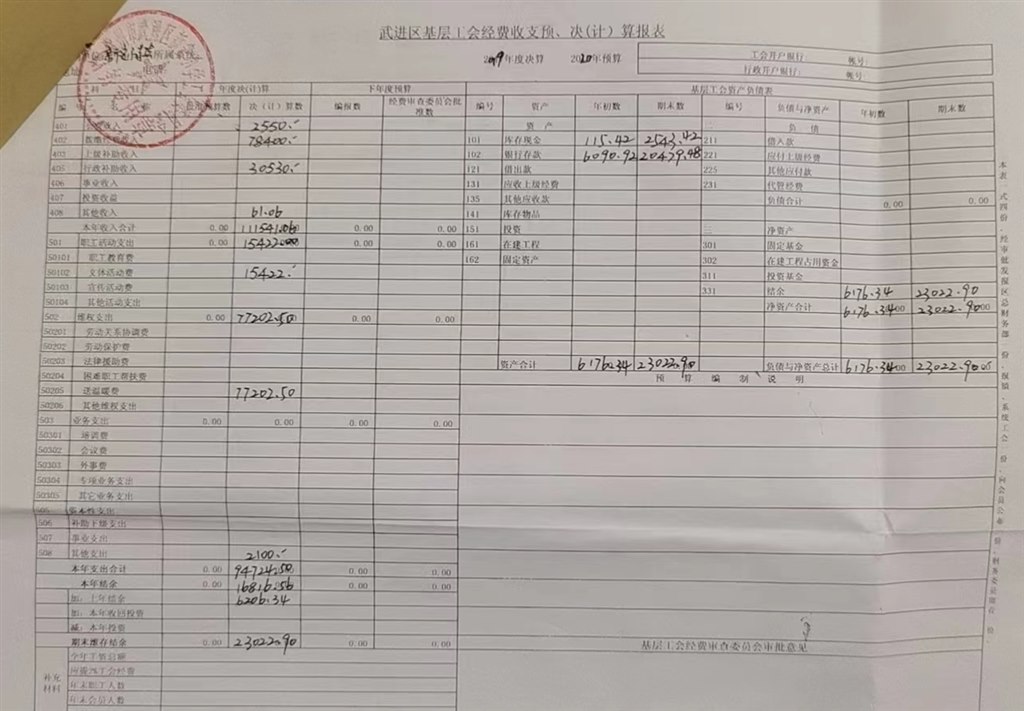 武进区基层工会经费收支预、决(计)算报表
2019年度决算 2020年预算
工会开户银行: 帐号:
行政开户银行: 帐号:
年度决(计)算 下年度预算 基层工会资产负债表
决(计)算数 编报数 经费审查委员会批准数 编号 资产 年初数 期末数 编号 负债与净资产 年初数 期末数
401 2550.- 资 产 负 债
402 78400.- 101 库存现金 115.42 2543.42 211 借入款
403 上级补助收入 102 银行存款 6090.92 20479.48 221 应付上级经费
405 行政补助收入 30530.- 121 借出款 225 其他应付款
406 事业收入 131 应收上级经费 231 代管经费
407 投资收益 135 其他应收款 负债合计 0.00 0.00
408 其他收入 61.06 141 库存物品
本年收入合计 0.00 111541.06 0.00 0.00 151 投资 净资产
501 职工活动支出 0.00 15422.00 0.00 0.00 161 在建工程 301 固定基金
50101 职工教育费 162 固定资产 302 在建工程占用资金
50102 文体活动费 15422.- 311 投资基金
50103 宣传活动费 331 结余 6176.34 23022.90
50104 其他活动支出 净资产合计 6176.34 23022.90
502 维权支出 0.00 77202.50 0.00 0.00
50201 劳动关系协调费
50202 劳动保护费
50203 法律援助费 资产合计 6176.34 23022.90 负债与净资产总计 6176.34 23022.90
50204 困难职工帮扶费 预 算 编 制 说 明
50205 送温暖费 77202.50
50206 其他维权支出
503 业务支出 0.00 0.00 0.00 0.00
50301 培训费
50302 会议费
50303 外事费
50304 专项业务支出
50305 其它业务支出
资本性支出
506 补助下级支出
507 事业支出
508 其他支出 2100.-
本年支出合计 0.00 94724.50 0.00 0.00
本年结余 0.00 16816.56 0.00 0.00
加:上年结余 6206.34
加:本年收回投资
减:本年投资
期末滚存结余 0.00 23022.90 0.00 0.00 基层工会经费审查委员会审批意见
补充材料 全年工资总额
年末职工人数
年末会员人数